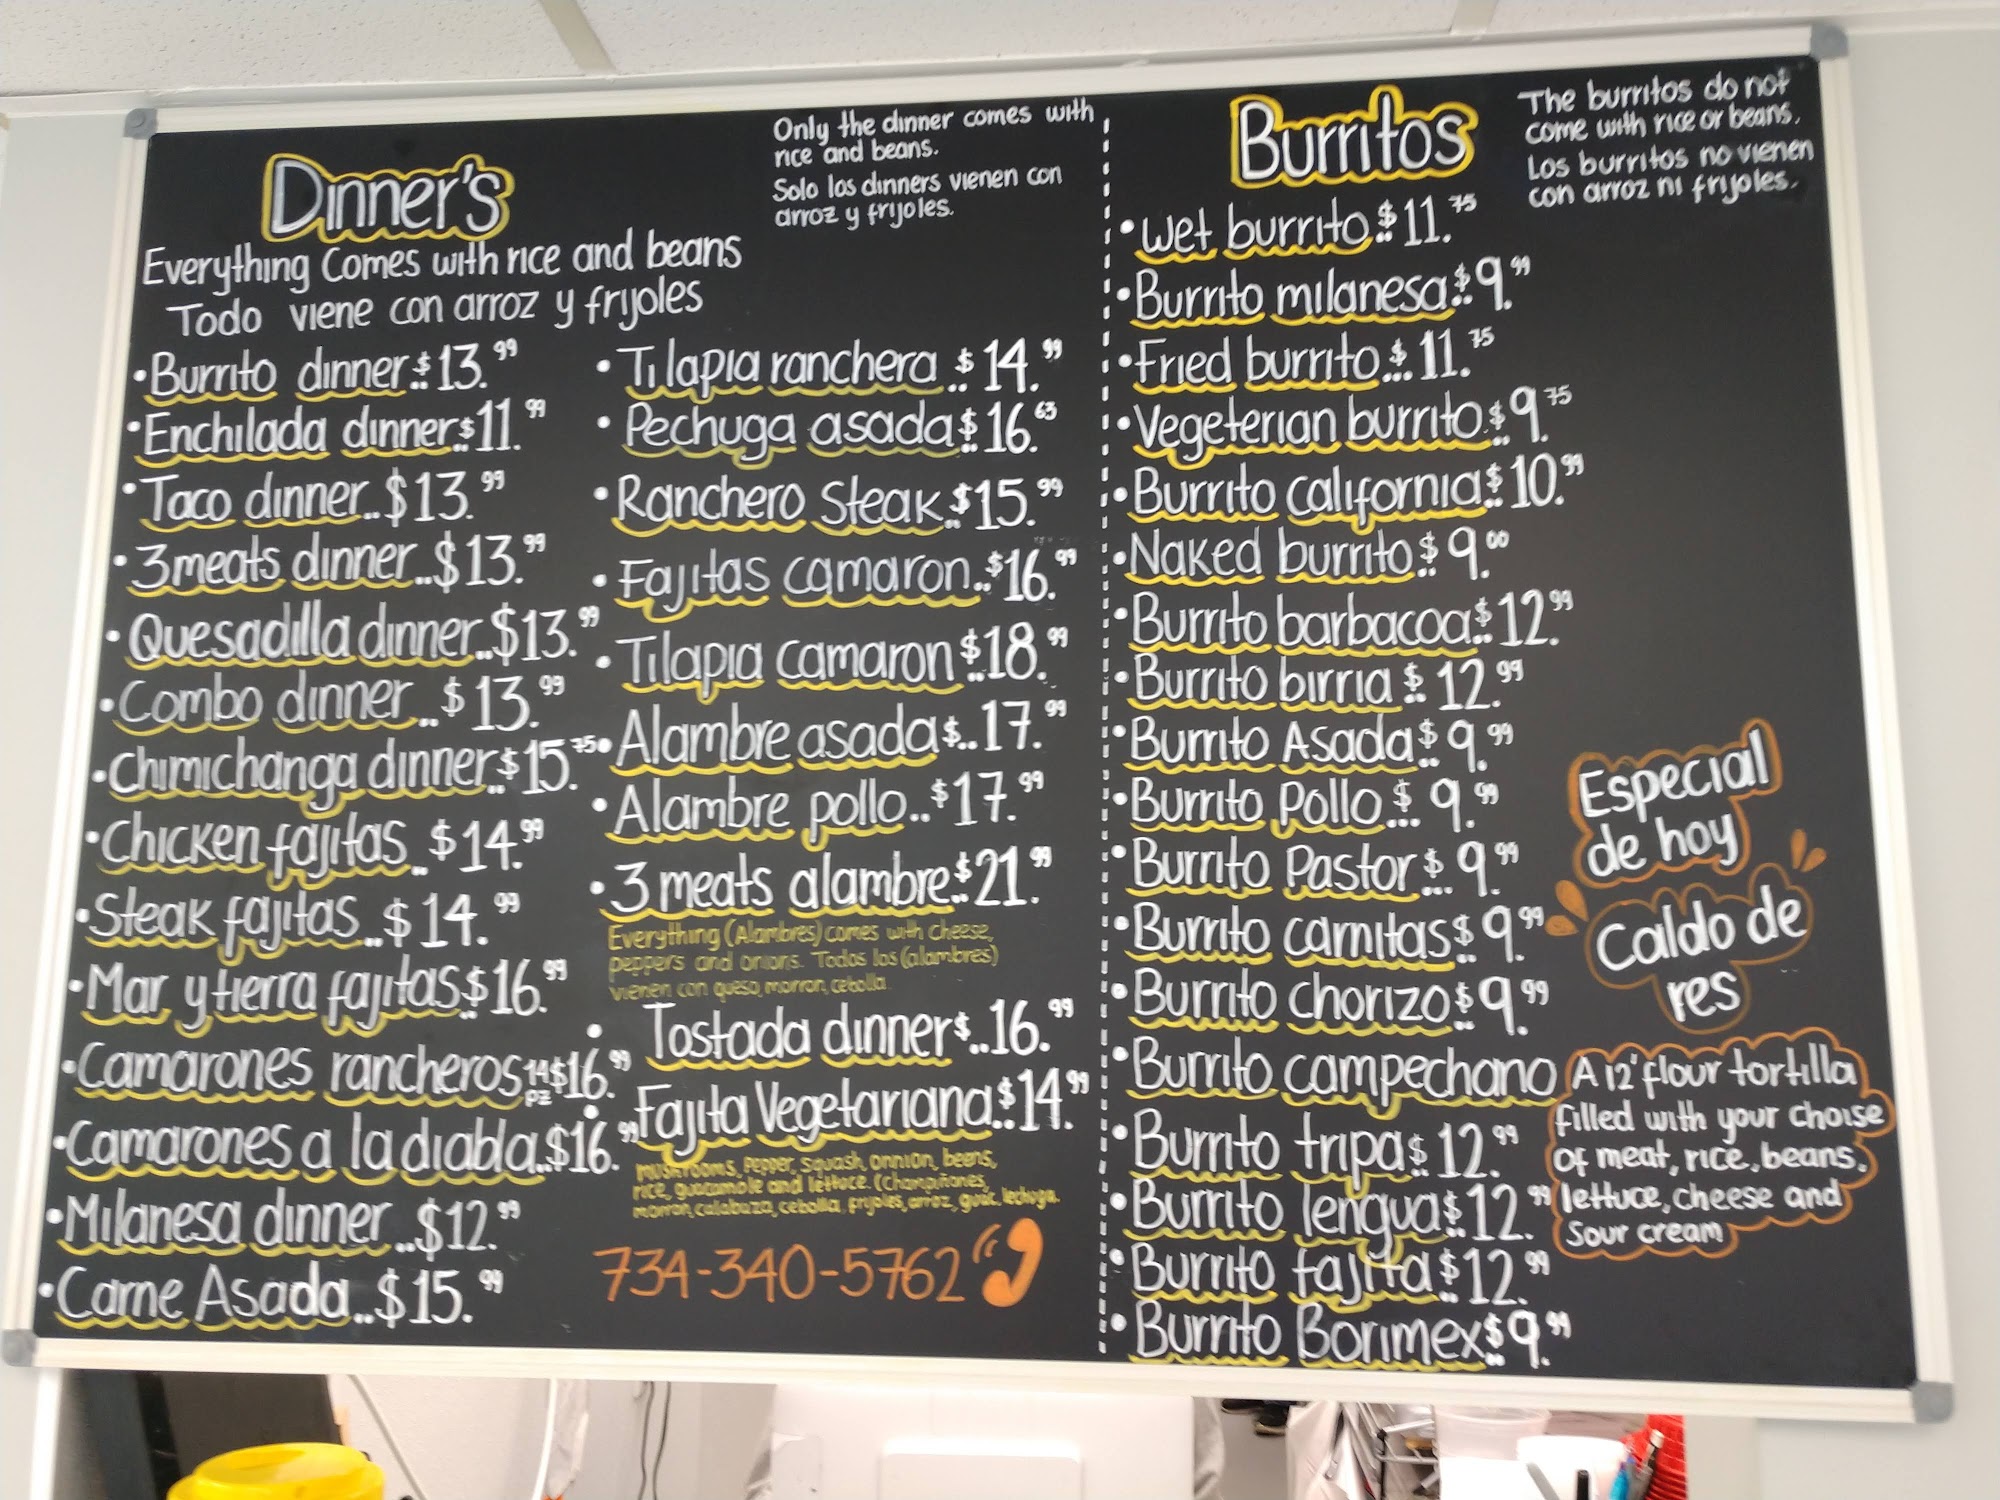 Dinner's
Everything Comes with rice and beans
Todo viene con arroz y frijoles
Only the dinner comes with
rice and beans.
Solo los dinners vienen con
arroz y frijoles.
•Burrito dinner..$13.99
•Enchilada dinner..$11.99
•Taco dinner..$13.99
•3 meats dinner..$13.99
•Quesadilla dinner..$13.99
•Combo dinner..$13.99
•Chimichanga dinner..$15.75
•Chicken fajitas..$14.99
•Steak fajitas..$14.99
•Mar y tierra fajitas..$16.99
•Camarones rancheros 14 pz $16.99
•Camarones a la diabla..$16.99
•Milanesa dinner..$12.99
•Carne Asada..$15.99
•Tilapia ranchera..$14.99
•Pechuga asada..$16.63
•Ranchero Steak..$15.99
•Fajitas camaron..$16.99
•Tilapia camaron..$18.99
•Alambre asada$..17.99
•Alambre pollo..$17.99
•3 meats alambre..$21.99
Everything (Alambres) comes with cheese,
peppers and onions. Todos los (alambres)
vienen con queso, morron, cebolla.
•Tostada dinner$..16.99
•Fajita Vegetariana..$14.99
mushrooms, Pepper, Squash, onnion, beens,
rice, guacamole and lettuce. (Champiñones,
morron, calabaza, cebolla, frijoles, arroz, guac. lechuga.
734-340-5762
Burritos
The burritos do not
come with rice or beans.
Los burritos no vienen
con arroz ni frijoles.
•Wet burrito..$11.75
•Burrito milanesa..$9.99
•Fried burrito...$11.75
•Vegeterian burrito..$9.75
•Burrito california..$10.99
•Naked burrito..$9.00
•Burrito barbacoa..$12.99
•Burrito birria..$12.99
•Burrito Asada..$9.99
•Burrito Pollo...$9.99
•Burrito Pastor...$9.99
•Burrito carnitas..$9.99
•Burrito chorizo..$9.99
•Burrito campechano
•Burrito tripa..$12.99
•Burrito lengua..$12.99
•Burrito fajita..$12.99
•Burrito Borimex..$9.99
Especial
de hoy
Caldo de
res
A 12" flour tortilla
filled with your choise
of meat, rice, beans,
lettuce, cheese and
Sour cream